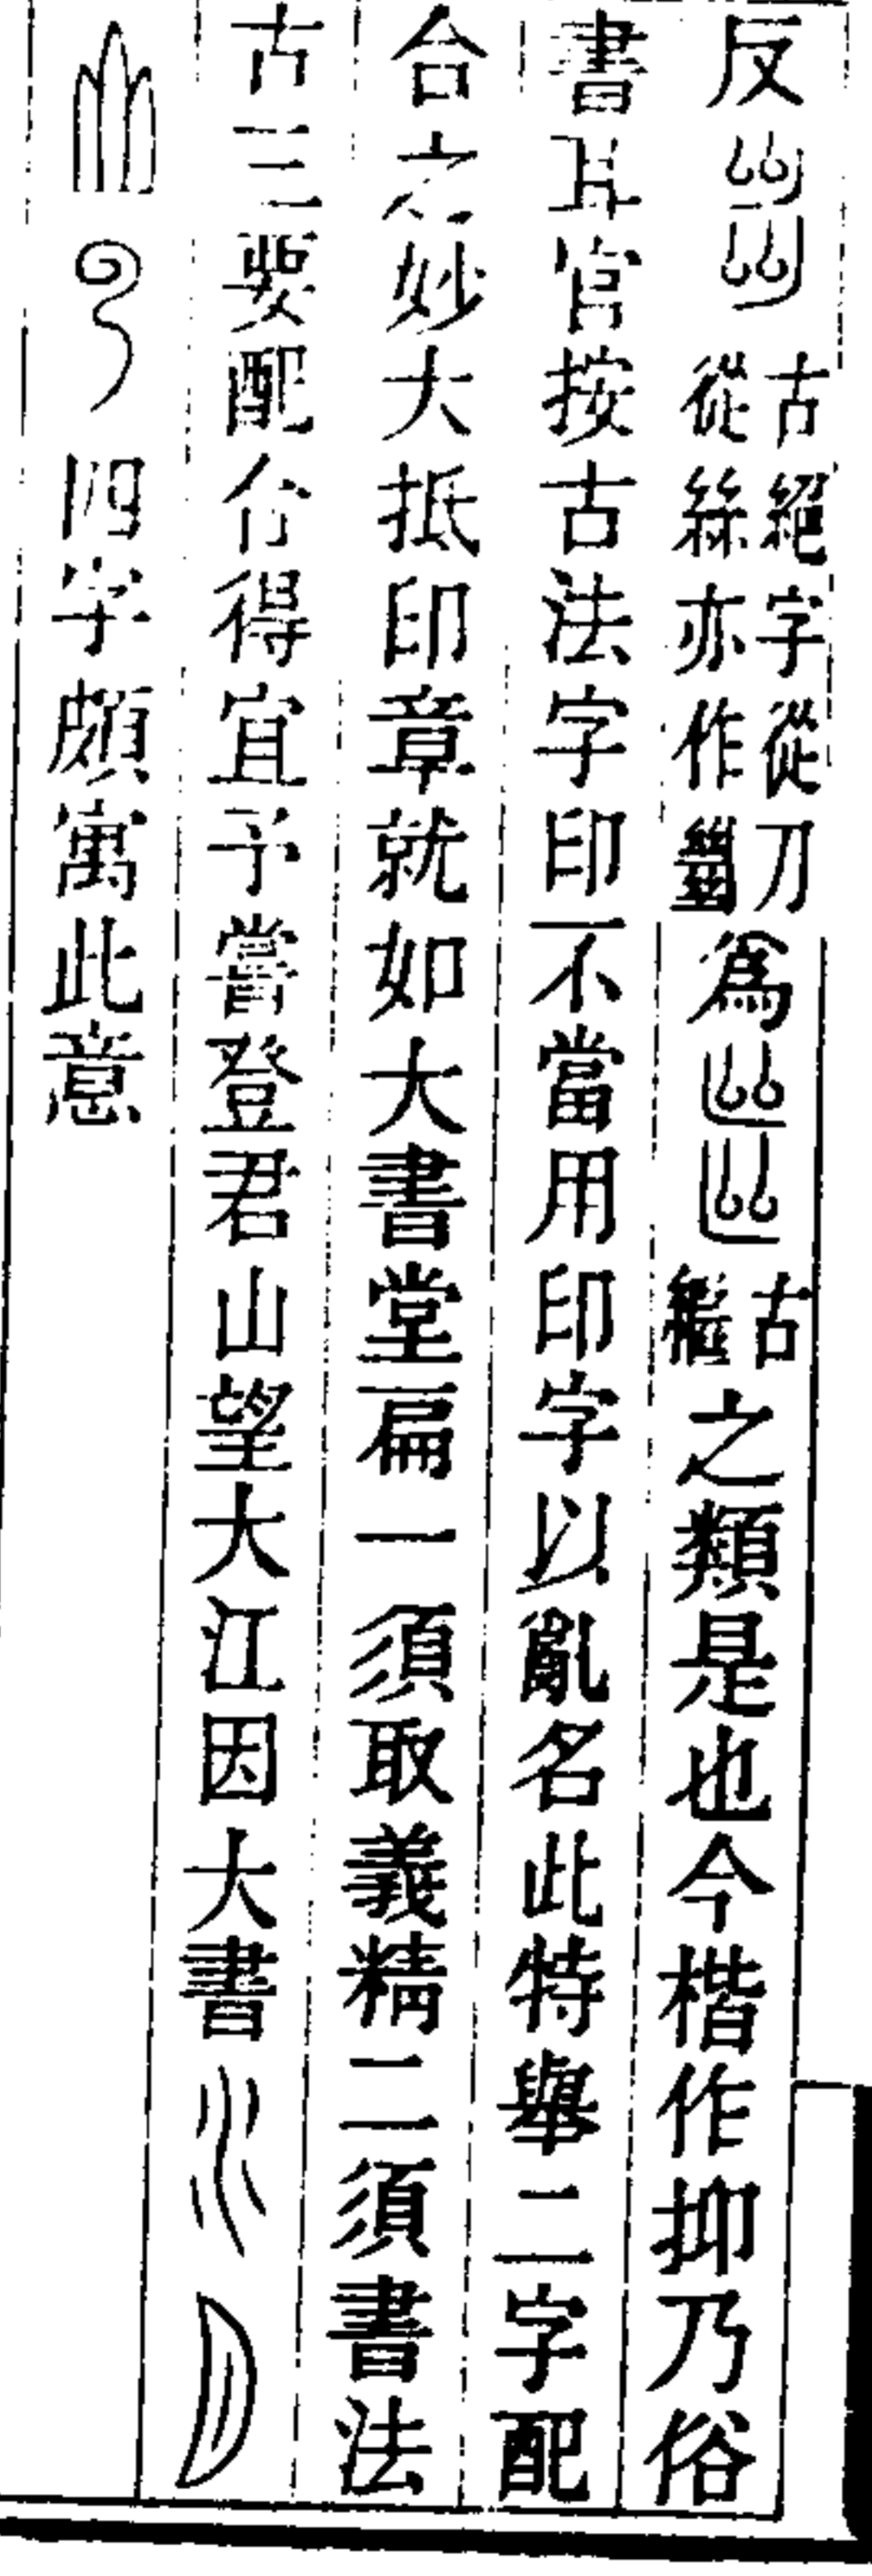 反𢇍古絕字從刀從絲亦作為古繼之類是也今楷作抑乃俗
書耳官按古法字印不當用印字以亂名此特舉二字配
合之妙大抵印章就如大書堂扁一須取義精二須書法
古三要配合得宜予嘗登君山望大江因大書水月
山云四字頗寓此意